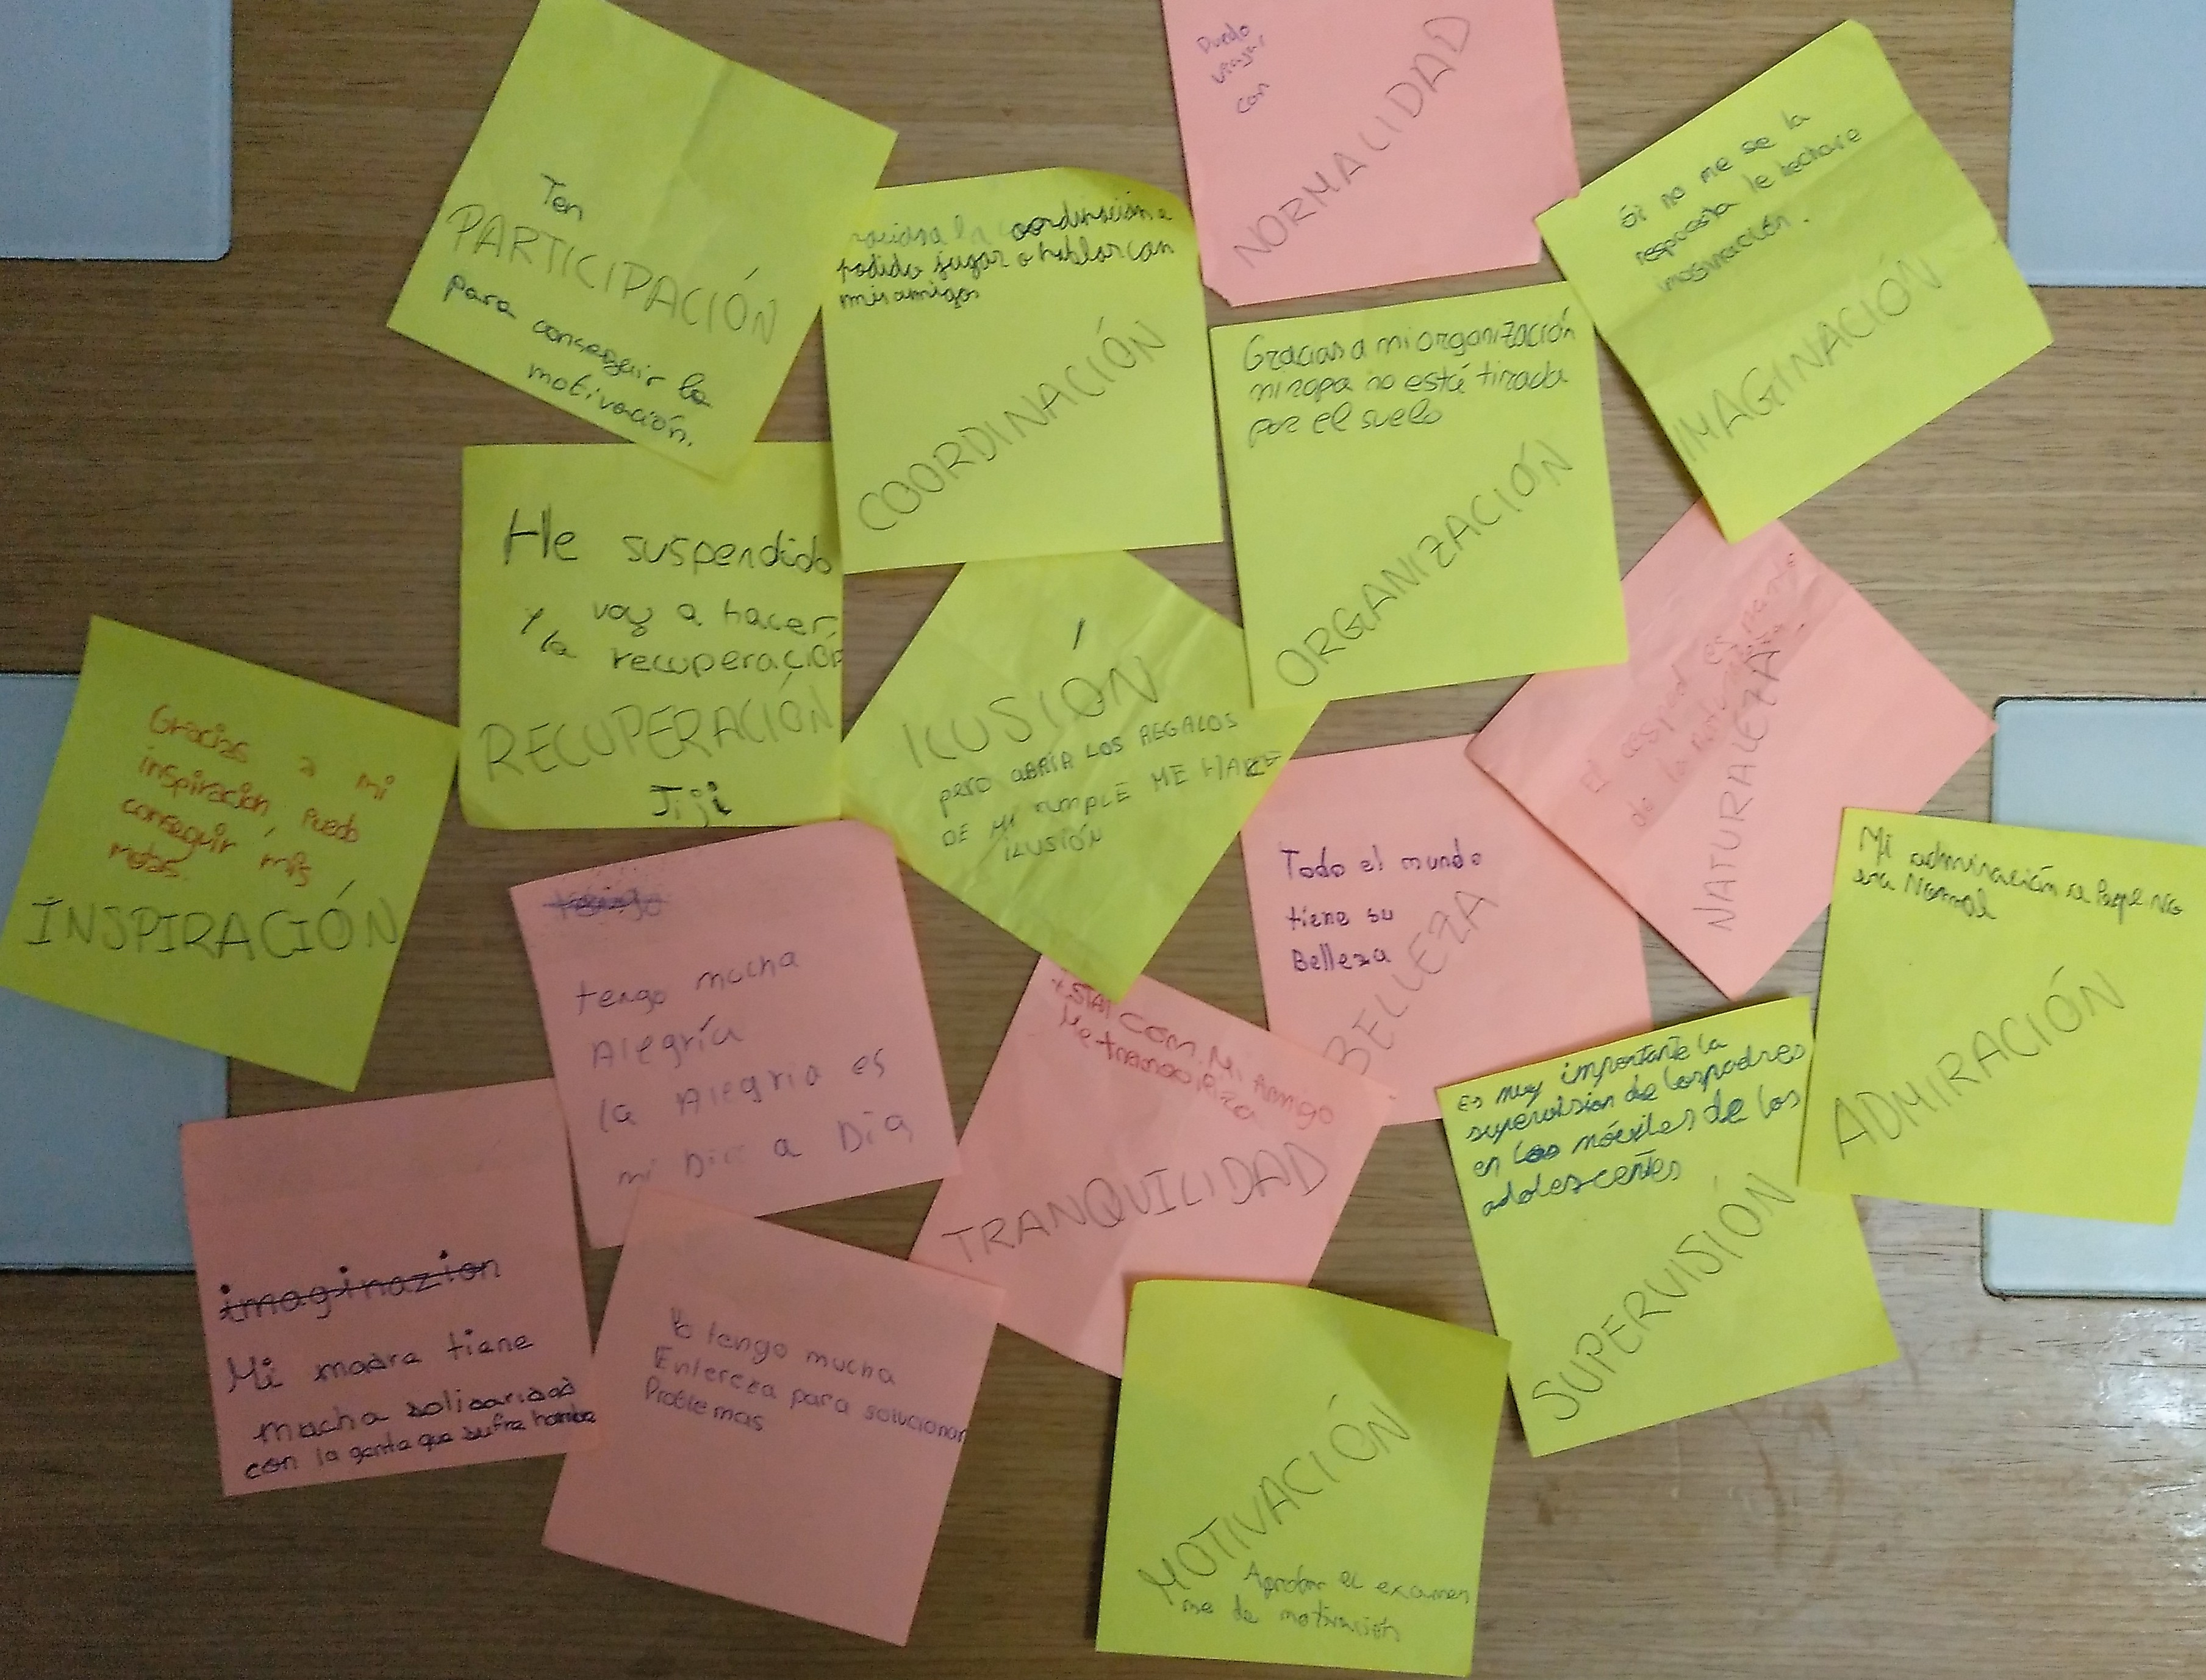 Ten
PARTICIPACIÓN
para conseguir la
motivación.
coordinación e
podido jugar o hablar con
mis amigos
COORDINACIÓN
Puedo
viajar
con
NORMALIDAD
Si no me se la
respuesta le hechare
imaginación.
IMAGINACIÓN
Gracias a mi organización
mi ropa no esté tirada
por el suelo
ORGANIZACIÓN
He suspendido
y voy a hacer
la recuperación
RECUPERACIÓN
Jiji
ILUSIÓN
pero ABRIR LOS REGALOS
DE MI CUMPLE ME HACE
ILUSIÓN
El cesped es parte
de la naturaleza.
NATURALEZA
Gracias a mi
inspiracion, puedo
conseguir mis
metas.
INSPIRACIÓN
Todo el mundo
tiene su
Belleza
BELLEZA
Mi admiración a Pepe No
era Normal
ADMIRACIÓN
tengo
tengo mucha
Alegría
la Alegria es
mi Dia a Dia
ESTAR COM Mi Amigo
Me
TRANQUILIDAD
Es muy importante la
supervision de los padres
en los móviles de los
adolescentes
SUPERVISIÓN
imaginazion
Mi madre tiene
mucha solidaridad
con la gente que sufre hambre
Yo tengo mucha
Entereza para solucionar
Problemas
MOTIVACIÓN
Aprobar el examen
me da motivación